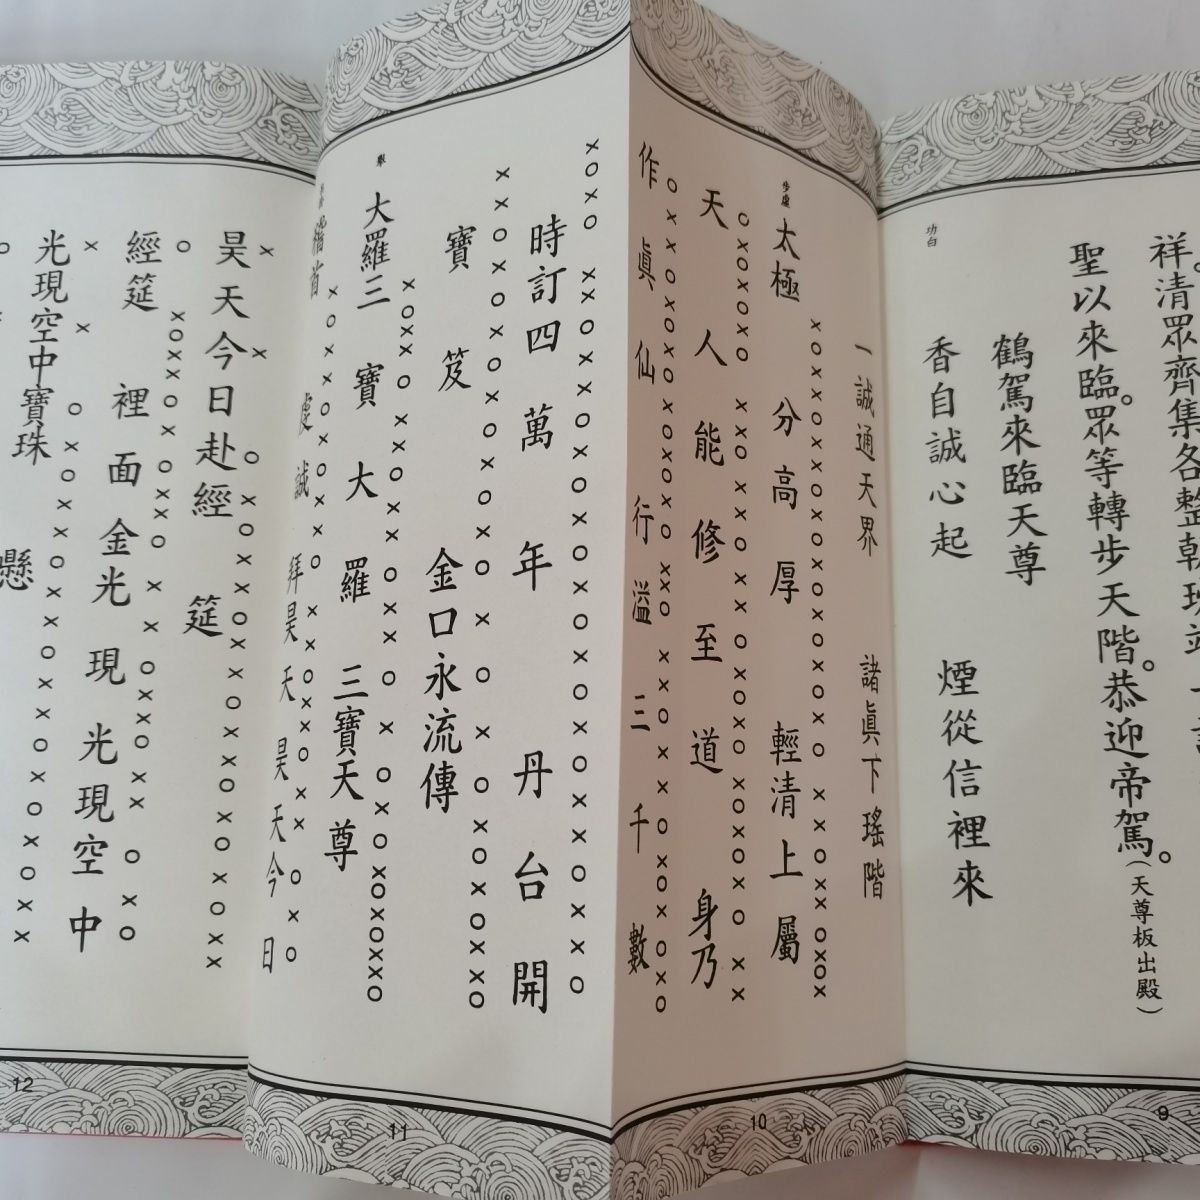 祥。清眾齊集各整朝班
聖以來臨。眾等轉步天階。恭迎帝駕。(天尊板出殿)
鶴駕來臨天尊
功白 香自誠心起 煙從信裡來
9
一誠通天界 諸眞下瑤階
步虛 太極分高厚 輕清上屬
天人能修至道 身乃
作眞仙行溢三千數
10
時訂四萬年丹台開
寶笈金口永流傳
舉 大羅三寶大羅三寶天尊
稽首虔誠拜昊天昊天今日
11
昊天今日赴經筵
經筵裡面金光現光現空中
光現空中寶珠懸
12